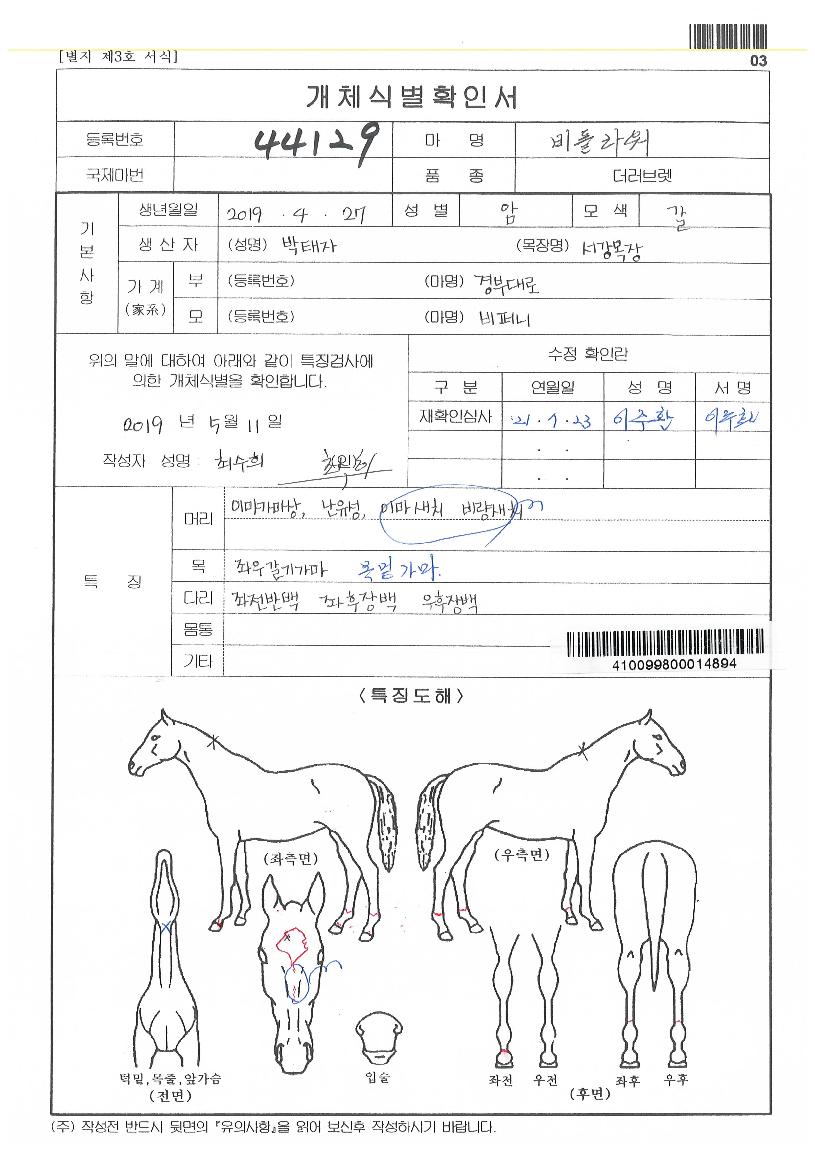 03
[별지 제3호 서식]
개체식별확인서
등록번호 44129 마 명 비톨라위
국제마번 품 종 더러브렛
기본사항
생년월일 2019 . 4 . 27 성 별 암 모 색 갈
생 산 자 (성명) 박태자 (목장명) 서강목장
가 계 (家系) 부 (등록번호) (마명) 경부대로
모 (등록번호) (마명) 비퍼니
위의 말에 대하여 아래와 같이 특징검사에
의한 개체식별을 확인합니다.
2019 년 5월 11 일
작성자 성명 : 최수희
수정 확인란
구 분 연월일 성 명 서 명
재확인심사 '21 . 1 . 23 이주환 이주환
. .
. .
특 징
머리 이마가마상, 난유성, 이마새치 비량새치
목 좌우갈기가마 목밑가마.
다리 좌전반백 좌후장백 우후장백
몸통
기타
410099800014894
<특징도해>
(좌측면) (우측면)
턱밑,목줄,앞가슴
(전면)
입술
좌전 우전 좌후 우후
(후면)
(주) 작성전 반드시 뒷면의 『유의사항』을 읽어 보신후 작성하시기 바랍니다.